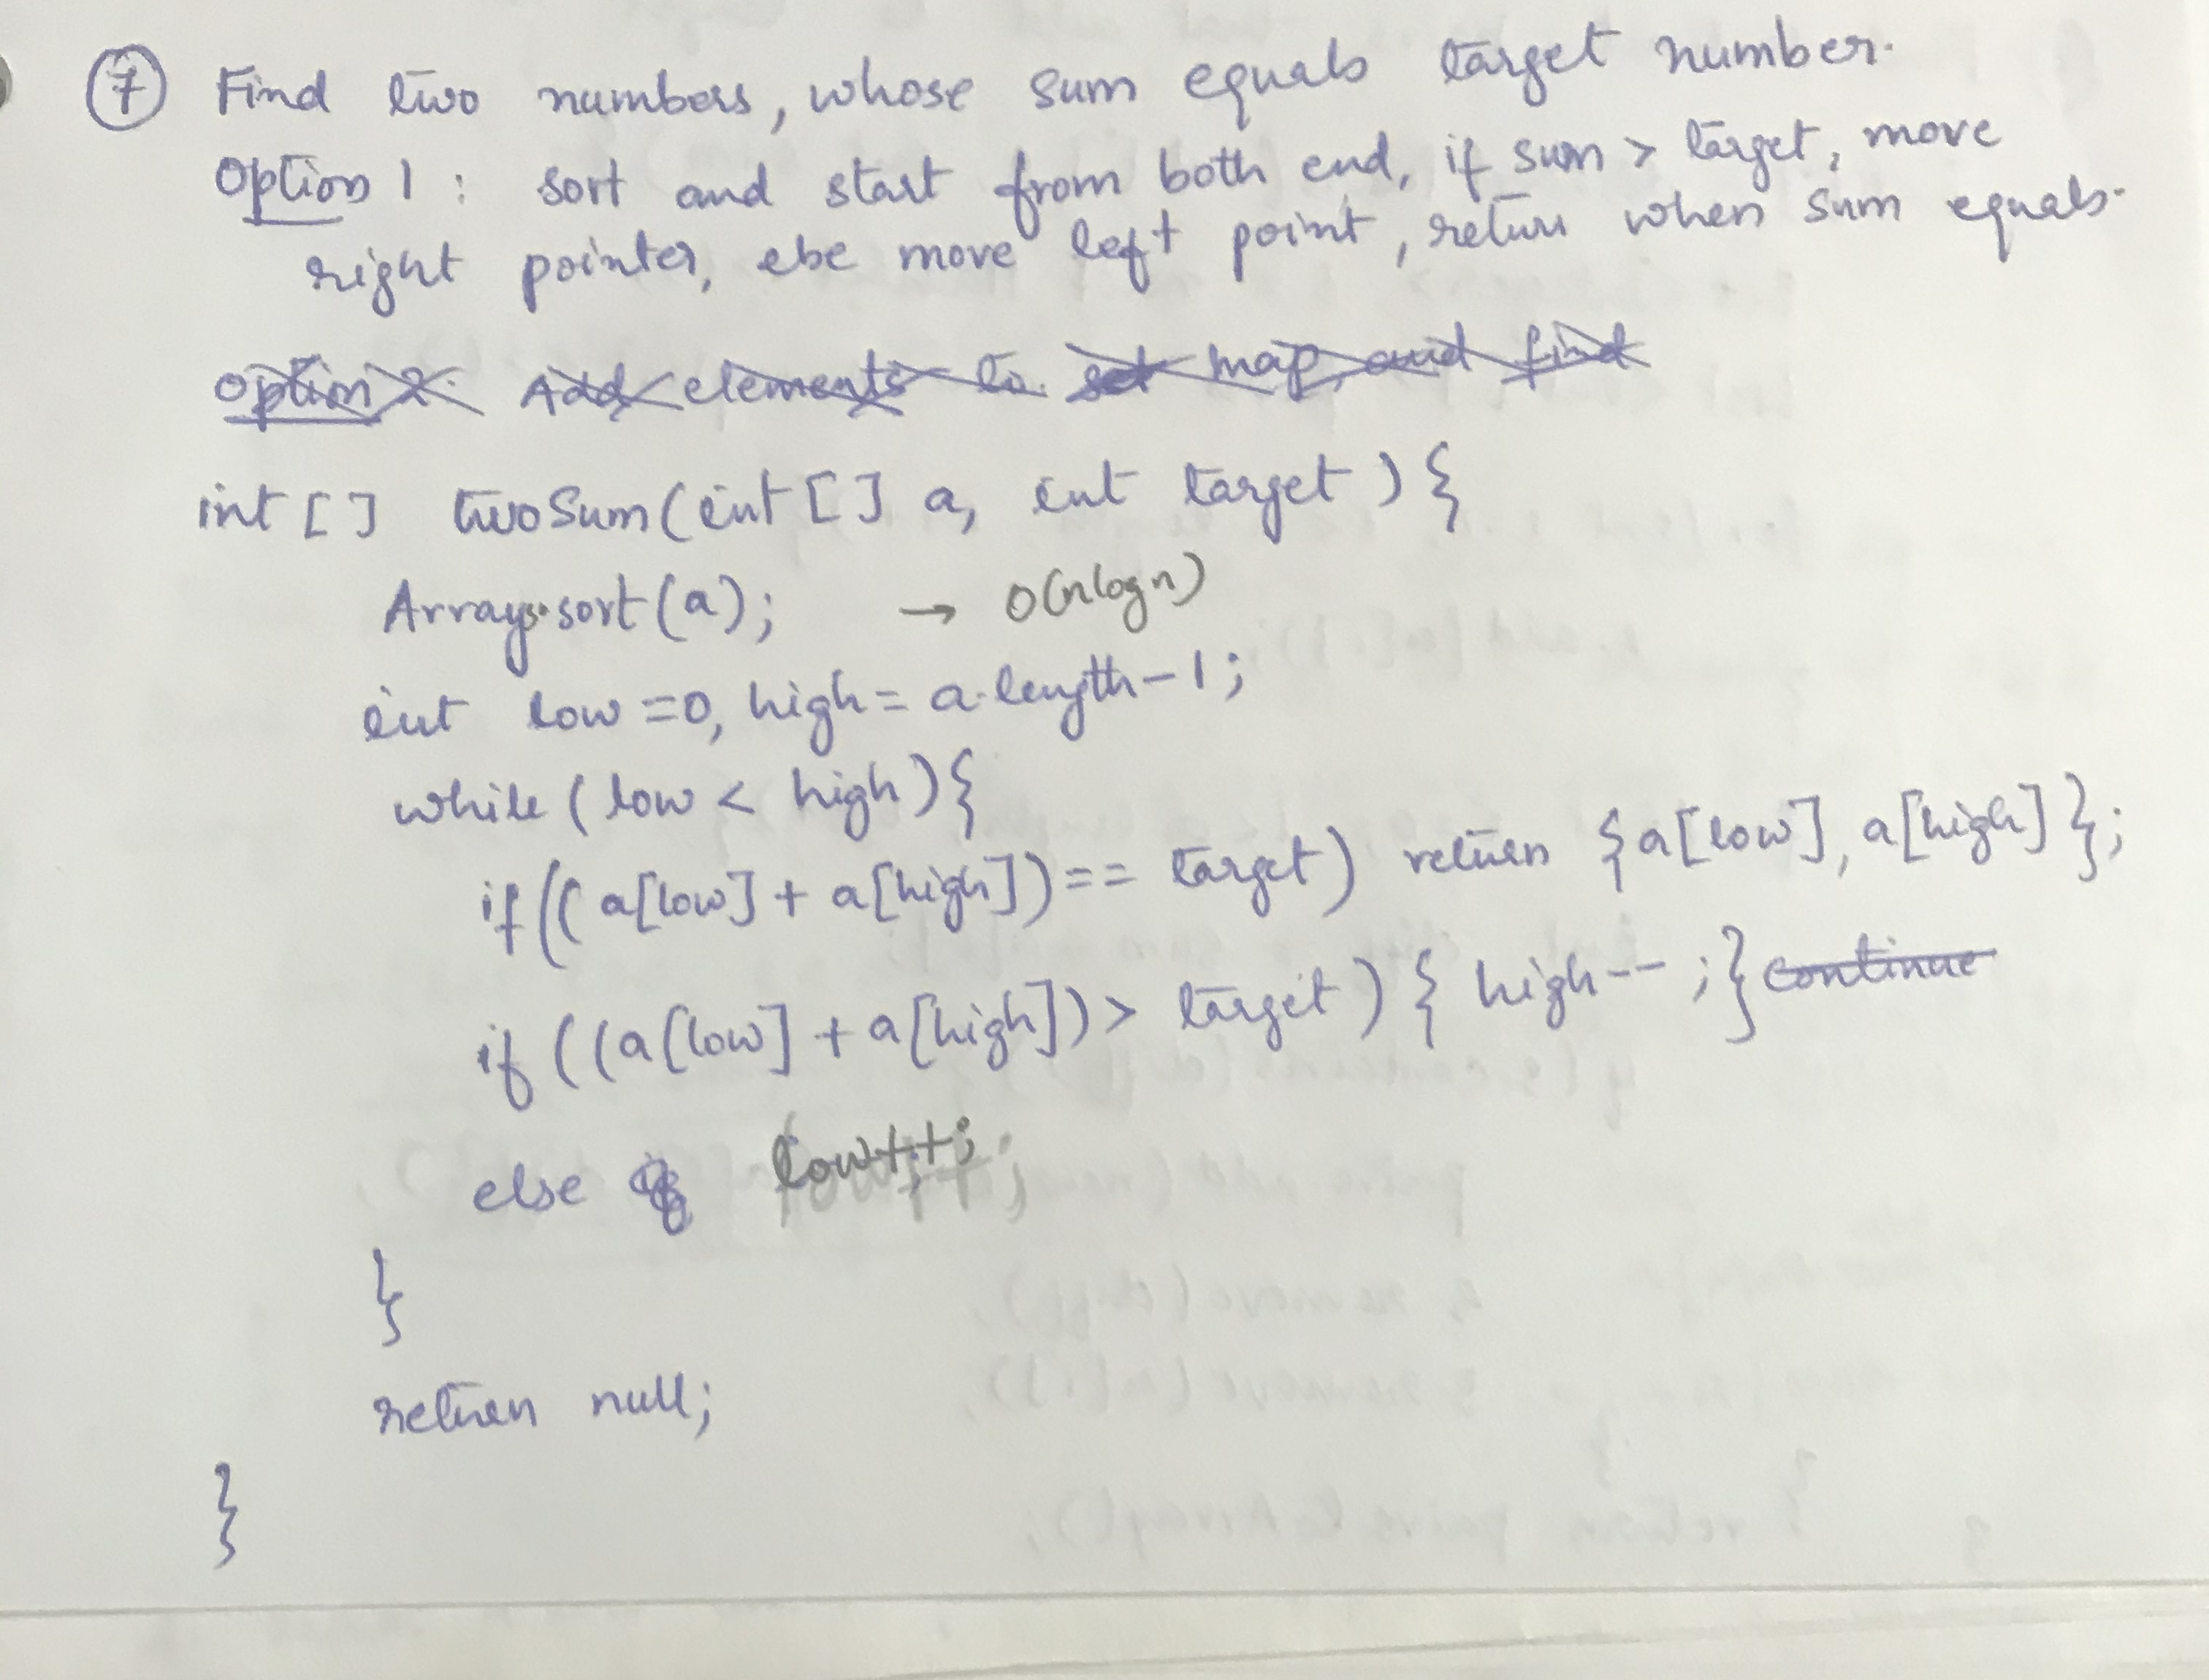 7 Find two numbers, whose sum equals target number.
Option 1 : sort and start from both end, if sum > target, move
right pointer, else move left point, return when sum equals.
Option 2. Add elements to set map, and find
int [] twoSum(int [] a, int target) {
Arrays.sort(a); → O(nlogn)
int low =0, high = a.length-1;
while (low < high) {
if ((a[low] + a[high]) == target) return {a[low], a[high]};
if ((a[low] + a[high]) > target) { high-- ;} continue
else low++;
}
return null;
}